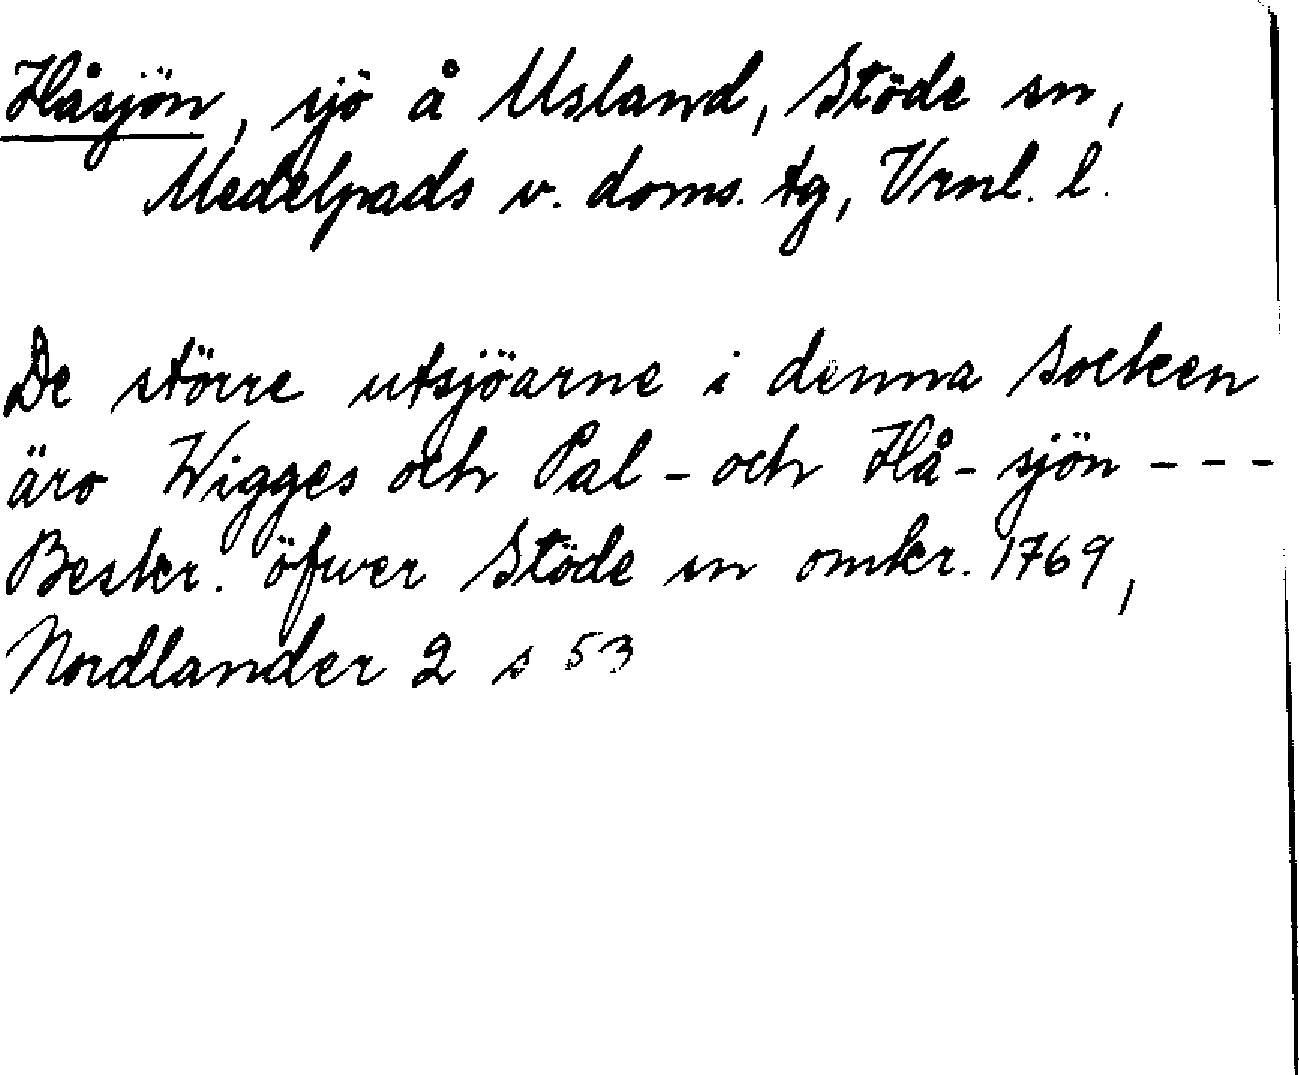 Håsjön, sjö å Usland, Stöde sn,
Medelpads v. doms. tg, Vrnl. l.
De större utsjöarne i denna Socken
äro Wigges och Pal- och Hå- sjön ---
Beskr. öfwer Stöde sn omkr. 1769,
Nordlander 2 s 53